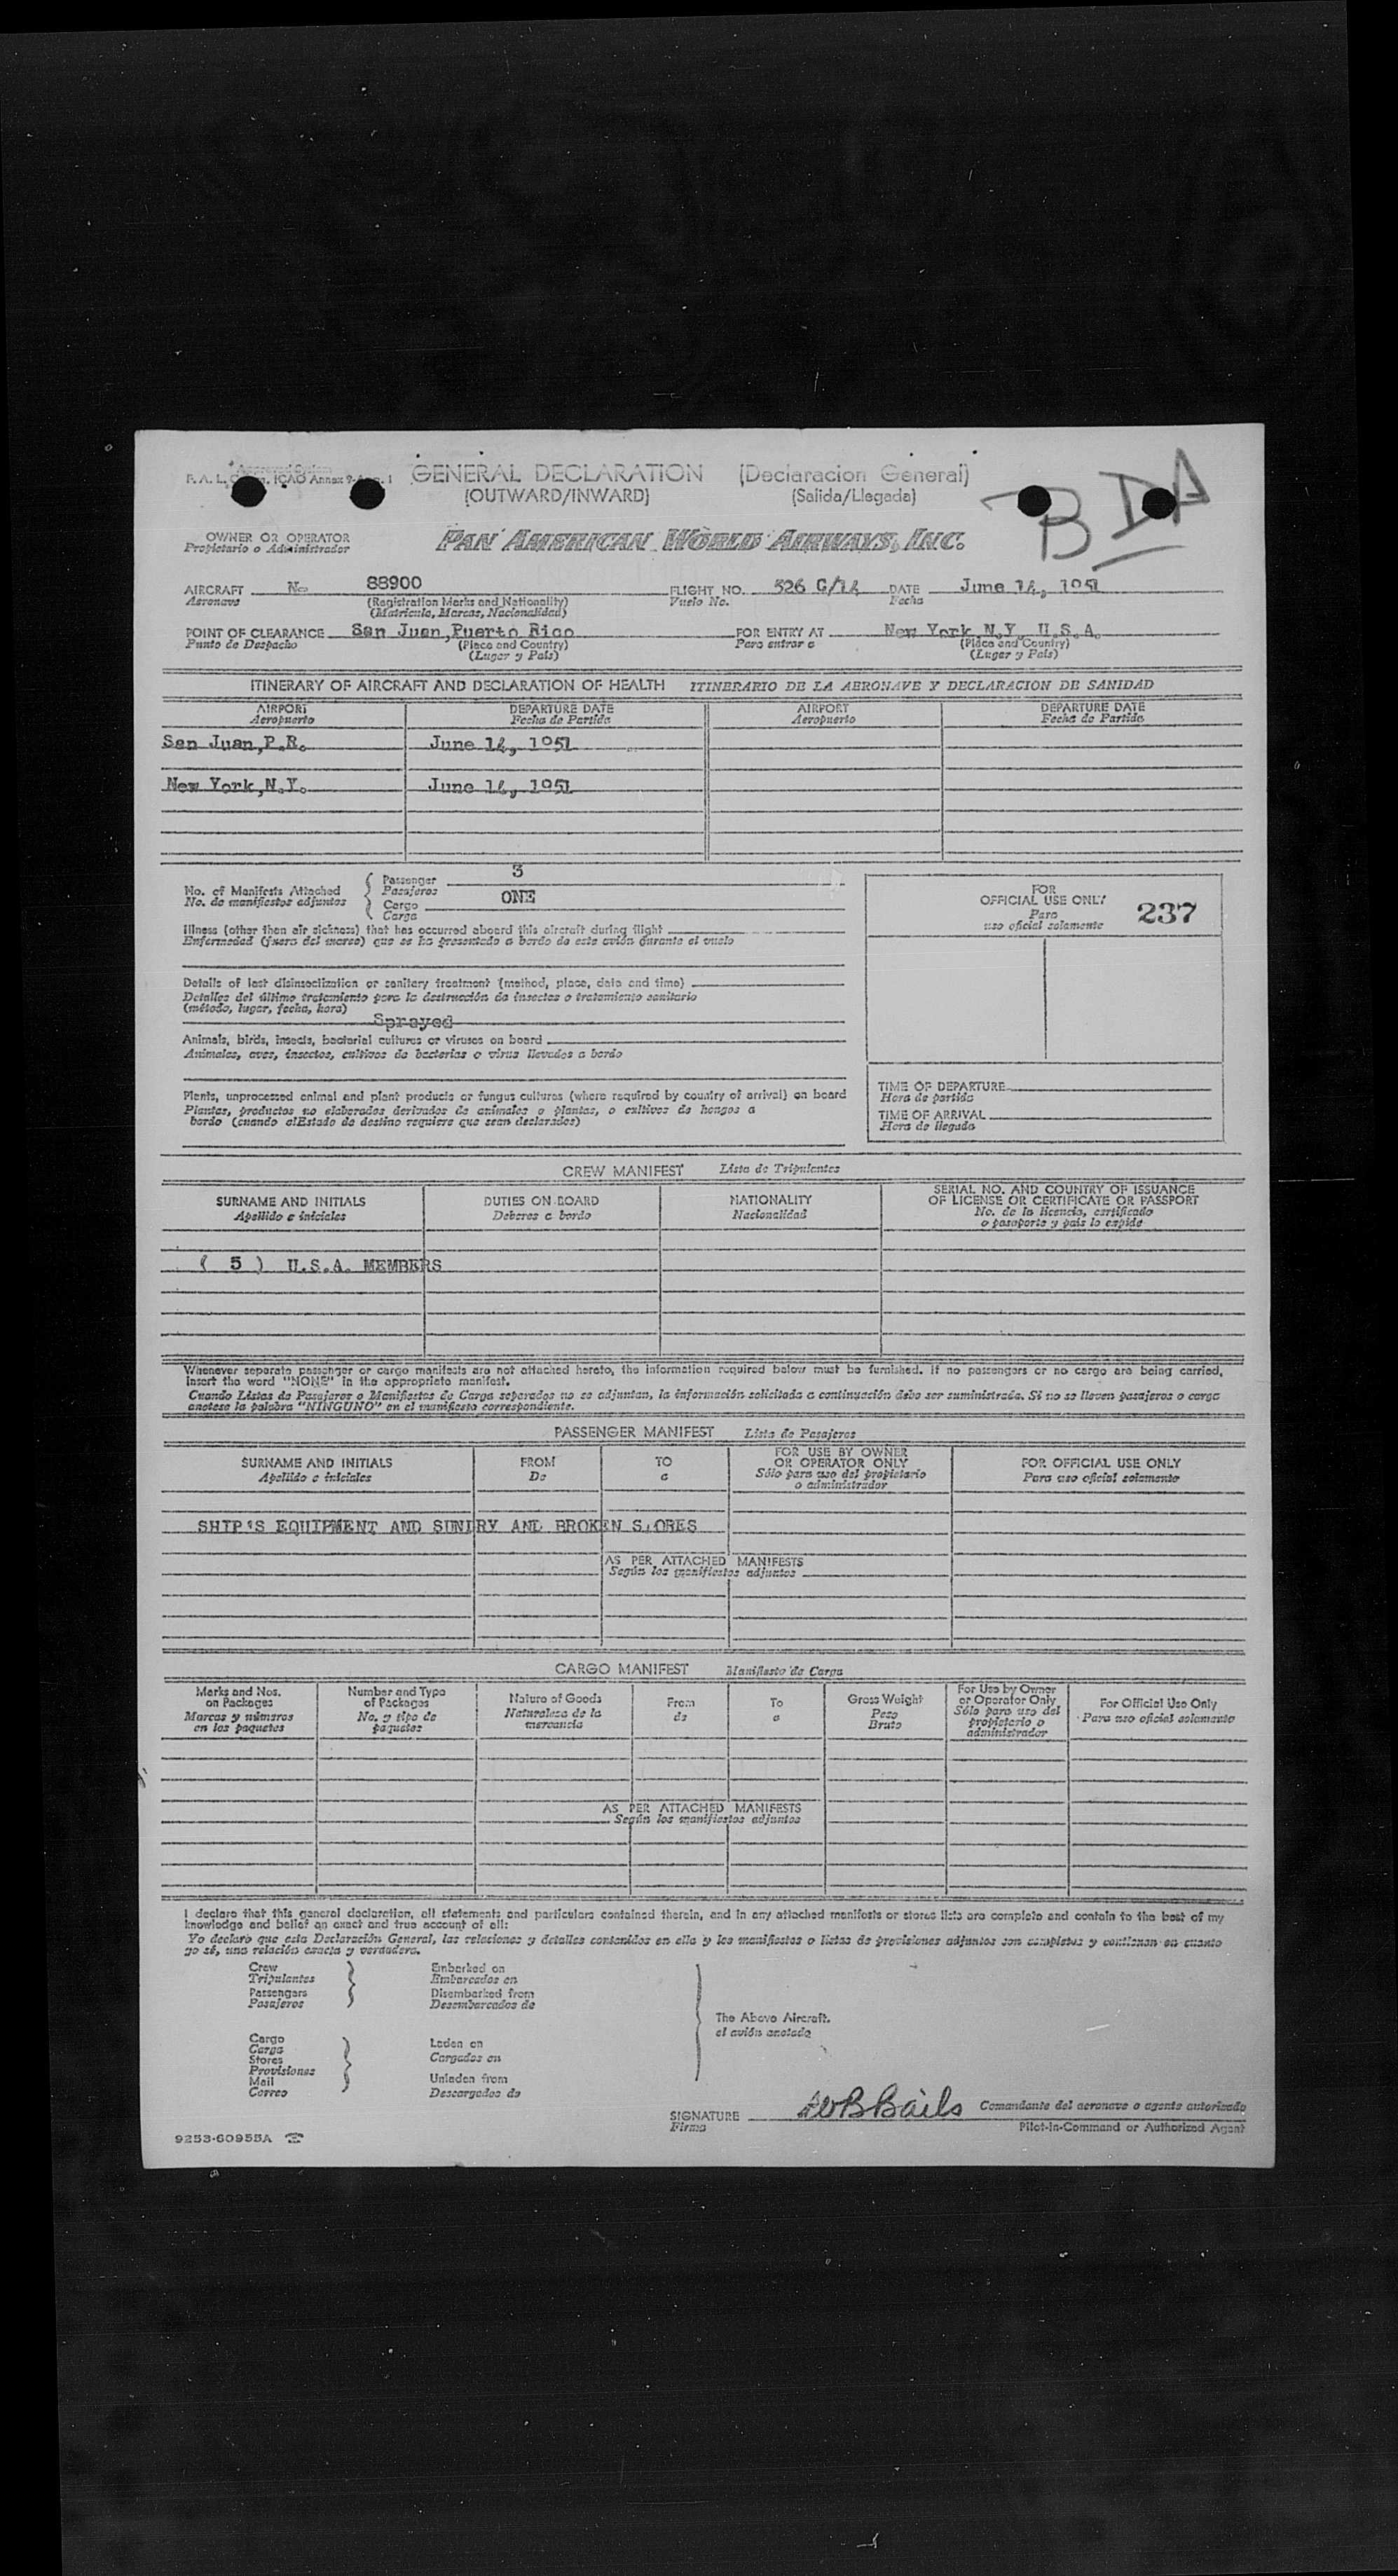 GENERAL DECLARATION (Declaracion General)
(OUTWARD/INWARD) (Salida/Llegada)
BDA
OWNER OR OPERATOR
Propietario o Administrador
PAN AMERICAN WORLD AIRWAYS, INC.
AIRCRAFT No 88900 FLIGHT NO. 526 G/14 DATE June 14, 1951
Aeronave (Registration Marks and Nationality) Vuelo No. Fecha
(Matricula, Marcas, Nacionalidad)
POINT OF CLEARANCE San Juan, Puerto Rico FOR ENTRY AT New York, N.Y. U.S.A.
Punto de Despacho (Place and Country) Para entrar a (Place and Country)
(Lugar y Pais) (Lugar y Pais)
ITINERARY OF AIRCRAFT AND DECLARATION OF HEALTH ITINERARIO DE LA AERONAVE Y DECLARACION DE SANIDAD
AIRPORT DEPARTURE DATE AIRPORT DEPARTURE DATE
Aeropuerto Fecha de Partida Aeropuerto Fecha de Partida
San Juan, P.R. June 14, 1951
New York, N.Y. June 14, 1951
No. of Manifests Attached
No. de manifiestos adjuntos
Passenger 3
Pasajeros
Cargo ONE
Carga
FOR
OFFICIAL USE ONLY
Para
uso oficial solamente
237
Illness (other than air sickness) that has occurred aboard this aircraft during flight
Enfermedad (fuera del mareo) que se ha presentado a bordo de este avión durante el vuelo
Details of last disinsectization or sanitary treatment (method, place, date and time)
Detalles del último tratamiento para la destrucción de insectos o tratamiento sanitario
(método, lugar, fecha, hora)
Sprayed
Animals, birds, insects, bacterial cultures or viruses on board
Animales, aves, insectos, cultivos de bacterias o virus llevados a bordo
Plants, unprocessed animal and plant products or fungus cultures (where required by country of arrival) on board
Plantas, productos no elaborados derivados de animales o plantas, o cultivos de hongos a
bordo (cuando elEstado de destino requiere que sean declarados)
TIME OF DEPARTURE
Hora de partida
TIME OF ARRIVAL
Hora de llegada
CREW MANIFEST Lista de Tripulantes
SURNAME AND INITIALS DUTIES ON BOARD NATIONALITY SERIAL NO. AND COUNTRY OF ISSUANCE
Apellido e iniciales Deberes a bordo Nacionalidad OF LICENSE OR CERTIFICATE OR PASSPORT
No. de la licencia, certificado
o pasaporte y país lo expide
( 5 ) U.S.A. MEMBERS
Whenever separate passenger or cargo manifests are not attached hereto, the information required below must be furnished. If no passengers or no cargo are being carried,
insert the word "NONE" in the appropriate manifest.
Cuando Listas de Pasajeros o Manifiestos de Carga separados no se adjuntan, la información solicitada a continuación debe ser suministrada. Si no se lleven pasajeros o carga
anotese la palabra "NINGUNO" en el manifiesto correspondiente.
PASSENGER MANIFEST Lista de Pasajeros
SURNAME AND INITIALS FROM TO FOR USE BY OWNER FOR OFFICIAL USE ONLY
Apellido e iniciales De a OR OPERATOR ONLY Para uso oficial solamente
Sólo para uso del propietario
o administrador
SHIP'S EQUIPMENT AND SUNDRY AND BROKEN STORES
AS PER ATTACHED MANIFESTS
Según los manifiestos adjuntos
CARGO MANIFEST Manifiesto de Carga
Marks and Nos. Number and Type Nature of Goods From To Gross Weight For Use by Owner For Official Use Only
on Packages of Packages Naturaleza de la de a Peso or Operator Only Para uso oficial solamente
Marcas y números No. y tipo de mercancia Bruto Sólo para uso del
en los paquetes paquetes propietario o
administrador
AS PER ATTACHED MANIFESTS
Según los manifiestos adjuntos
I declare that this general declaration, all statements and particulars contained therein, and in any attached manifests or stores lists are complete and contain to the best of my
knowledge and belief an exact and true account of all:
Yo declaro que esta Declaración General, las relaciones y detalles contenidos en ella y los manifiestos o listas de provisiones adjuntos son completas y contienen en cuanto
yo sé, una relación exacta y verdadera.
Crew Embarked on
Tripulantes Embarcados en
Passengers Disembarked from
Pasajeros Desembarcados de
The Above Aircraft.
el avión anotado
Cargo
Carga Laden on
Stores Cargados en
Provisiones
Mail Unladen from
Correo Descargados de
SIGNATURE Comandante del aeronave o agente autorizado
Firma Pilot-in-Command or Authorized Agent
9253-60955A